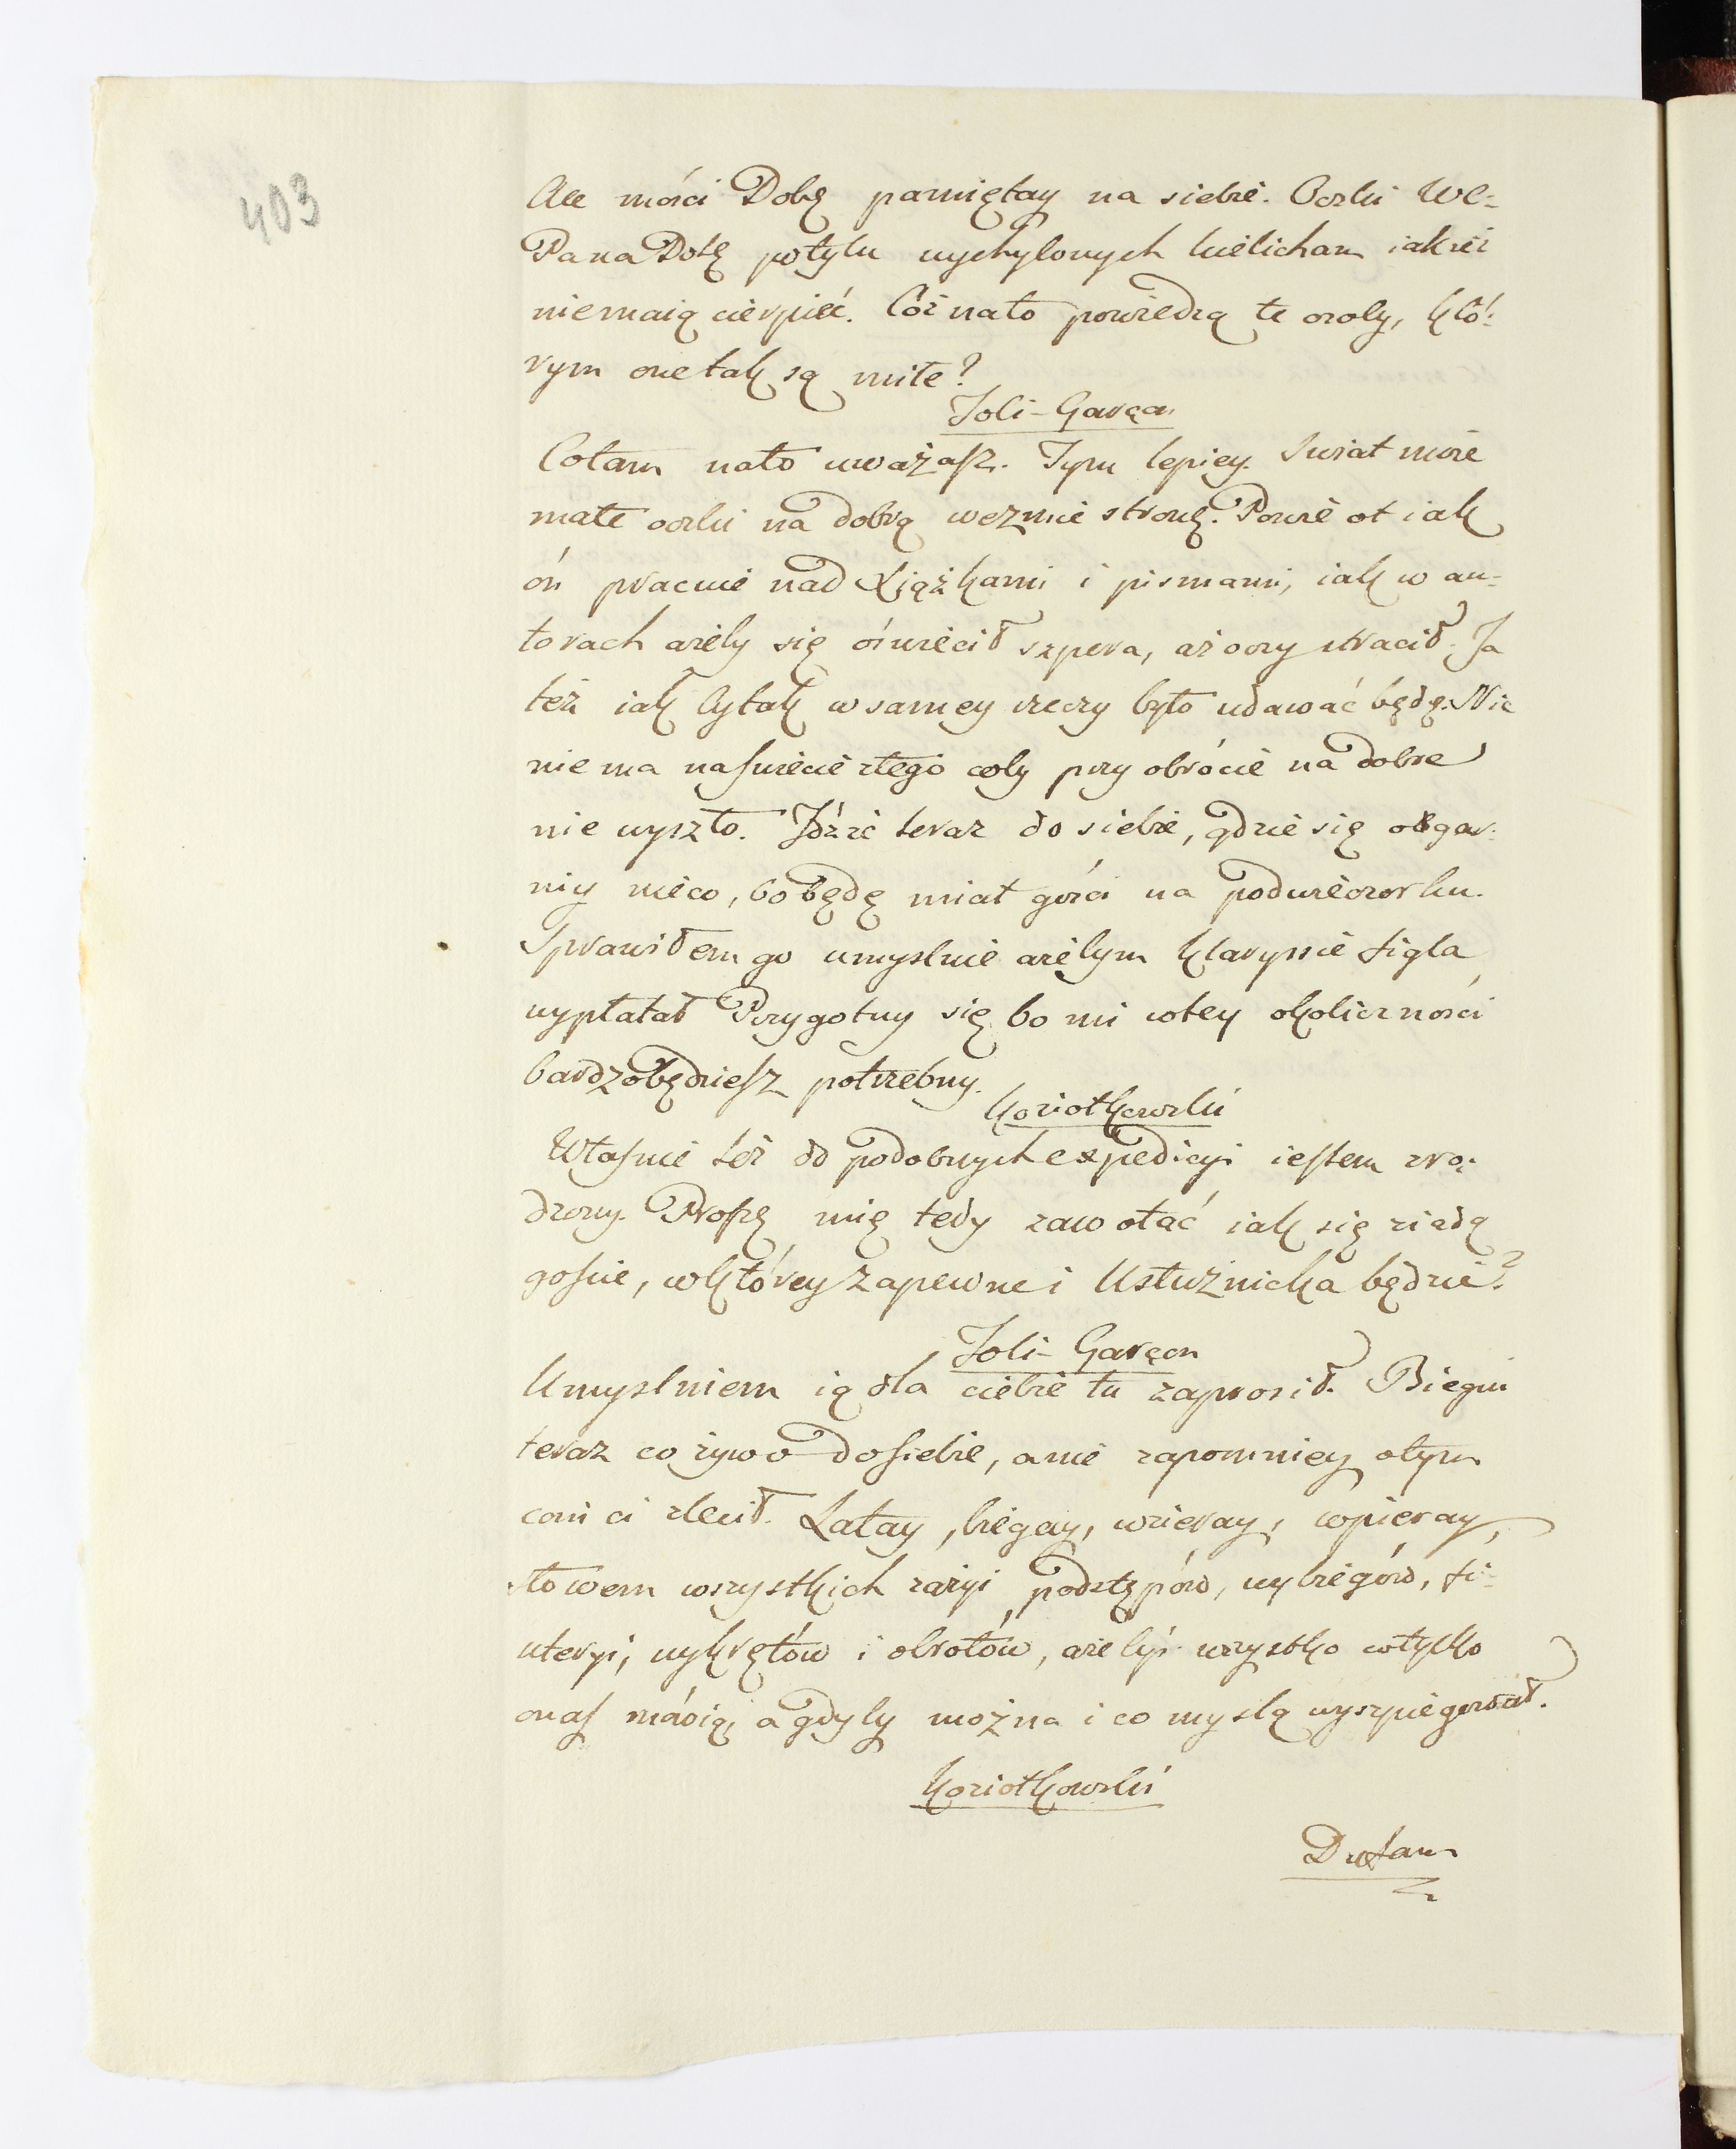 403
Ale mości Dobę pamiętay na siebie. Oczki We-
Pana Dobę potylu wychylonych kielicham iakżeż
niemaią cierpieć. Cóż nato powiedzą te osoby, któ-
rym one tak są miłe?
Joli-Garçon
Cotam nato uważasz. Tym lepiey. Swiat moie
małe oczki na dobrą wezmie stronę. Powie ot iak
ón pracuie nad Xiążkami i pismami, iak w au-
torach ażeby się óświecił szpera, aż oczy stracił. Ja
też iak bytak wsamey rzeczy było udawać będę. Nic
nie ma naświecie złego coby przy obrócie na dobre
nie wyszło. Idźże teraz do siebie, gdzie się obgar-
niy nieco, bo będę miał gości na podwieczorku.
Sprawiłem go umyslnie ażebym Klarysie figla
wypłatał Przygotuy się bo mi wtey okoliczności
bardzobędziesz potrzebny.
Koziołkowski
Własnie też do podobnych expedicyi iestem zro-
dzony. Proszę mię tedy zawołać iak się ziadą
goście, wktórey zapewne i Usłużnicka będzie?
Joli-Garçon
Umyslniem ią dla ciebie tu zaprosił. Biegni
teraz co żywo dosiebie, a nie zapomniey otym
com ci zlecił. Latay, biegay, wzieray, wpieray,
słowem wszystkich zażyi podstępów, wybiegów, fi-
uteryi, wykrętów i obrotów, ażebyś wszystko cotylko
onas mówią, a gdyby można i co myslą wyszpiegował.
Koziołkowski
Dufam